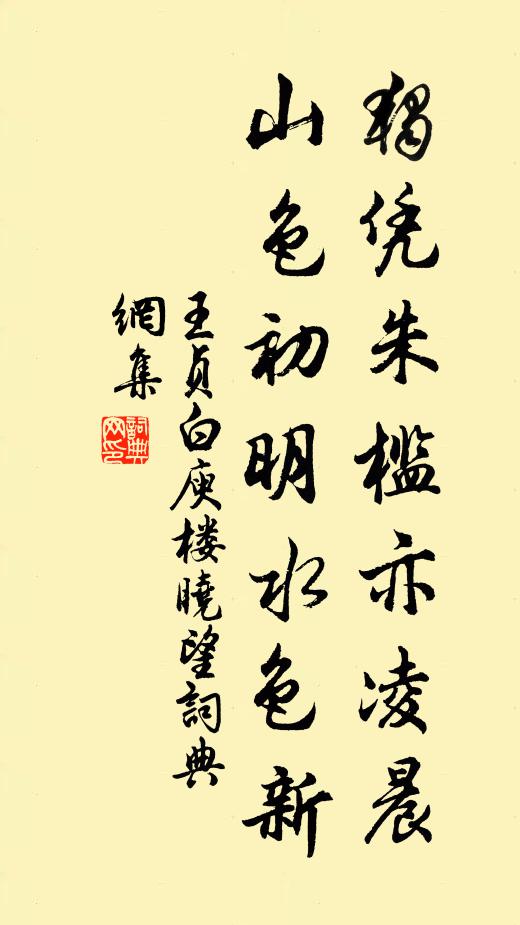 獨凭朱檻亦凌晨
山色初明水色新
王貞白庾楼曉望詞典
網集
詞典
网印